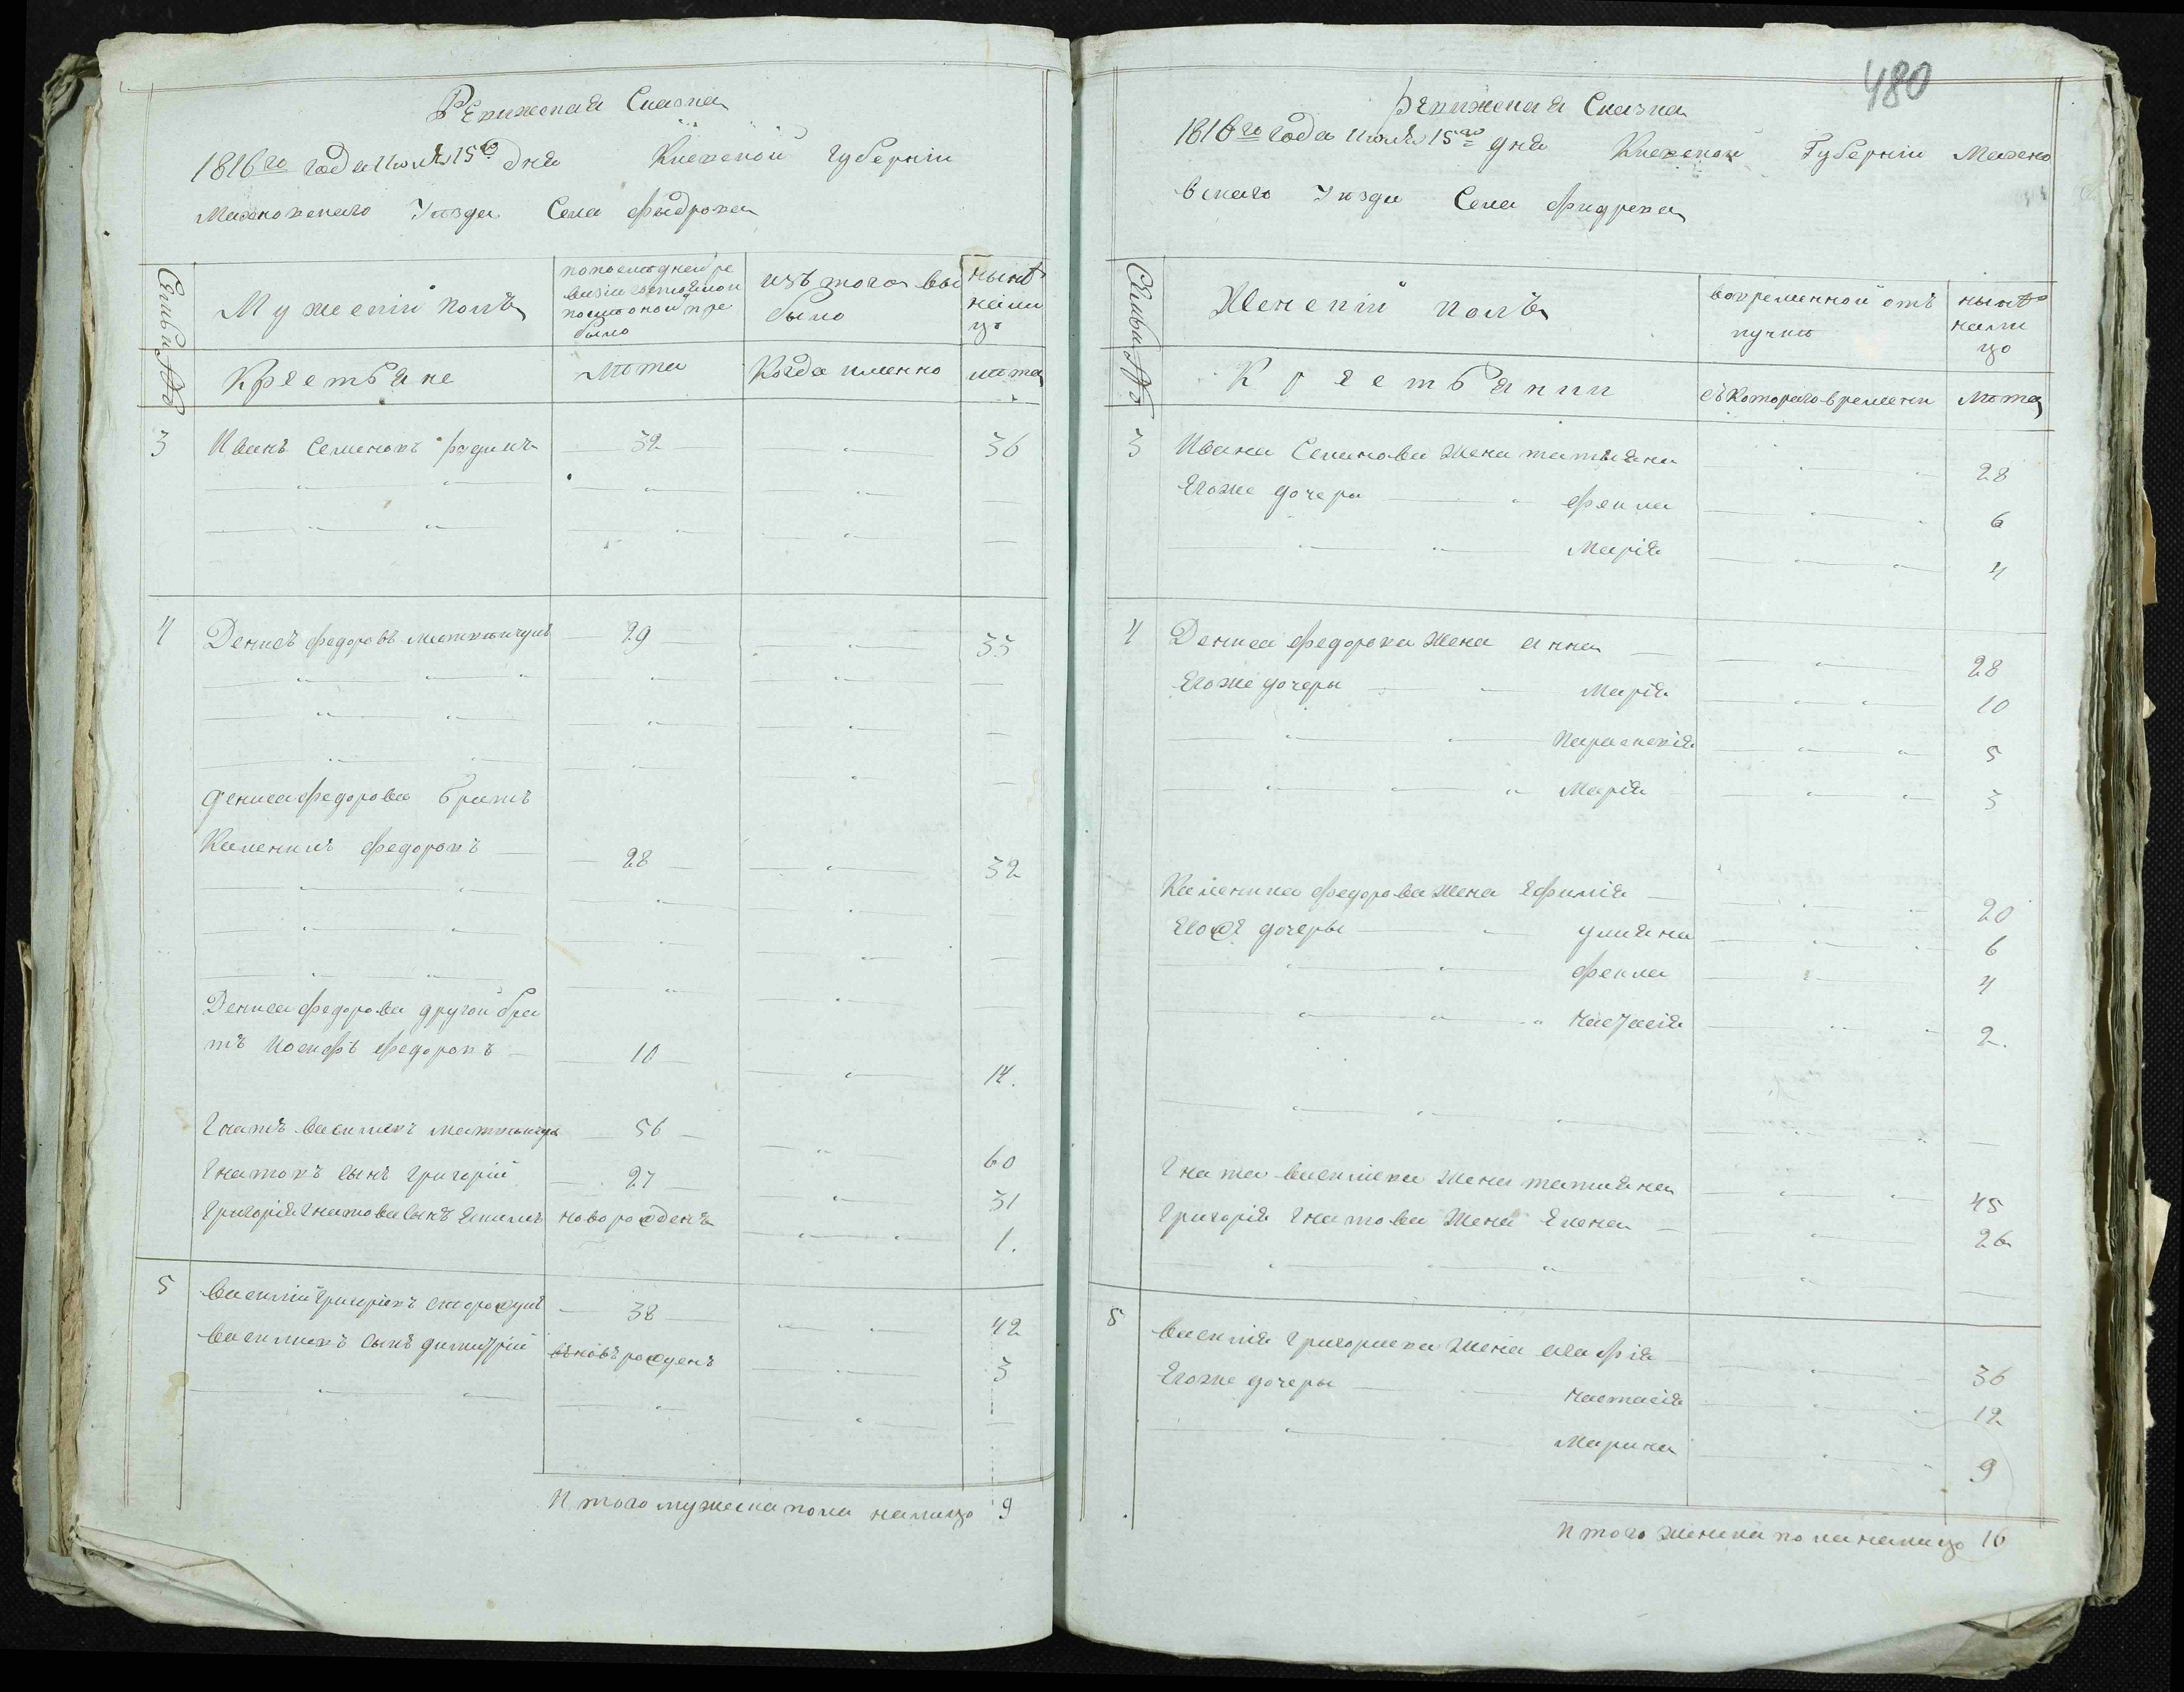 Ревижская Сказка
1816го года июля 15го дня Киевской губернии
Махновскаго Уезда Села Фыдрова
Семьи №
Мужескiй полъ
по последней ревизiи состояло и после оной прибыло
изъ того выбыло
ныне на лицо
Крестьяне
лета
Когда именно
лета
3 Иванъ Семеновъ 32 36
4 Денисъ Федоровъ 29 33
Дениса Федорова братъ
Каленикъ Федоровъ 28 32
Дениса Федорова другой бра
тъ Иосифъ Федоровъ 10 14.
Гнатъ Василiевъ 56 60
Гнатовъ сынъ Григорiй 27 31
Григорiя Гнатова сынъ новорожденъ 1.
5 Василiй Григорiевъ 38 42
Василиевъ сынъ Димитрiй вновъ рожденъ 3
Итого мужеска пола налицо 9
480
Ревижская Сказка
1816го года июля 15го дня Киевской Губернiи Махно
вскаго Уезда Села Фидрова
Семьи №
Женскiй полъ
во временной отъ
лучке
ныне на лицо
Крестьянки
съ котораго времени
лета
3 Ивана Семенова жена татьяна 28
Егоже дочеры Фекла 6
Марiя 4
4 Дениса Федорова жена анна 28
Егоже дочеры Марiя 10
Парасковiя 5
Марiя 3
Каленика Федорова жена Ефимiя 20
Егоже дочеры улияна 6
Фекла 4
Настасiя 2.
Гната Василiева жена татияна 45
Григорiя Гнатова жена Елена 26
5 Василiя Григориева жена агафiя 36
Егоже дочеры Настасiя 12
Марина 9
Итого женска пола налицо 16